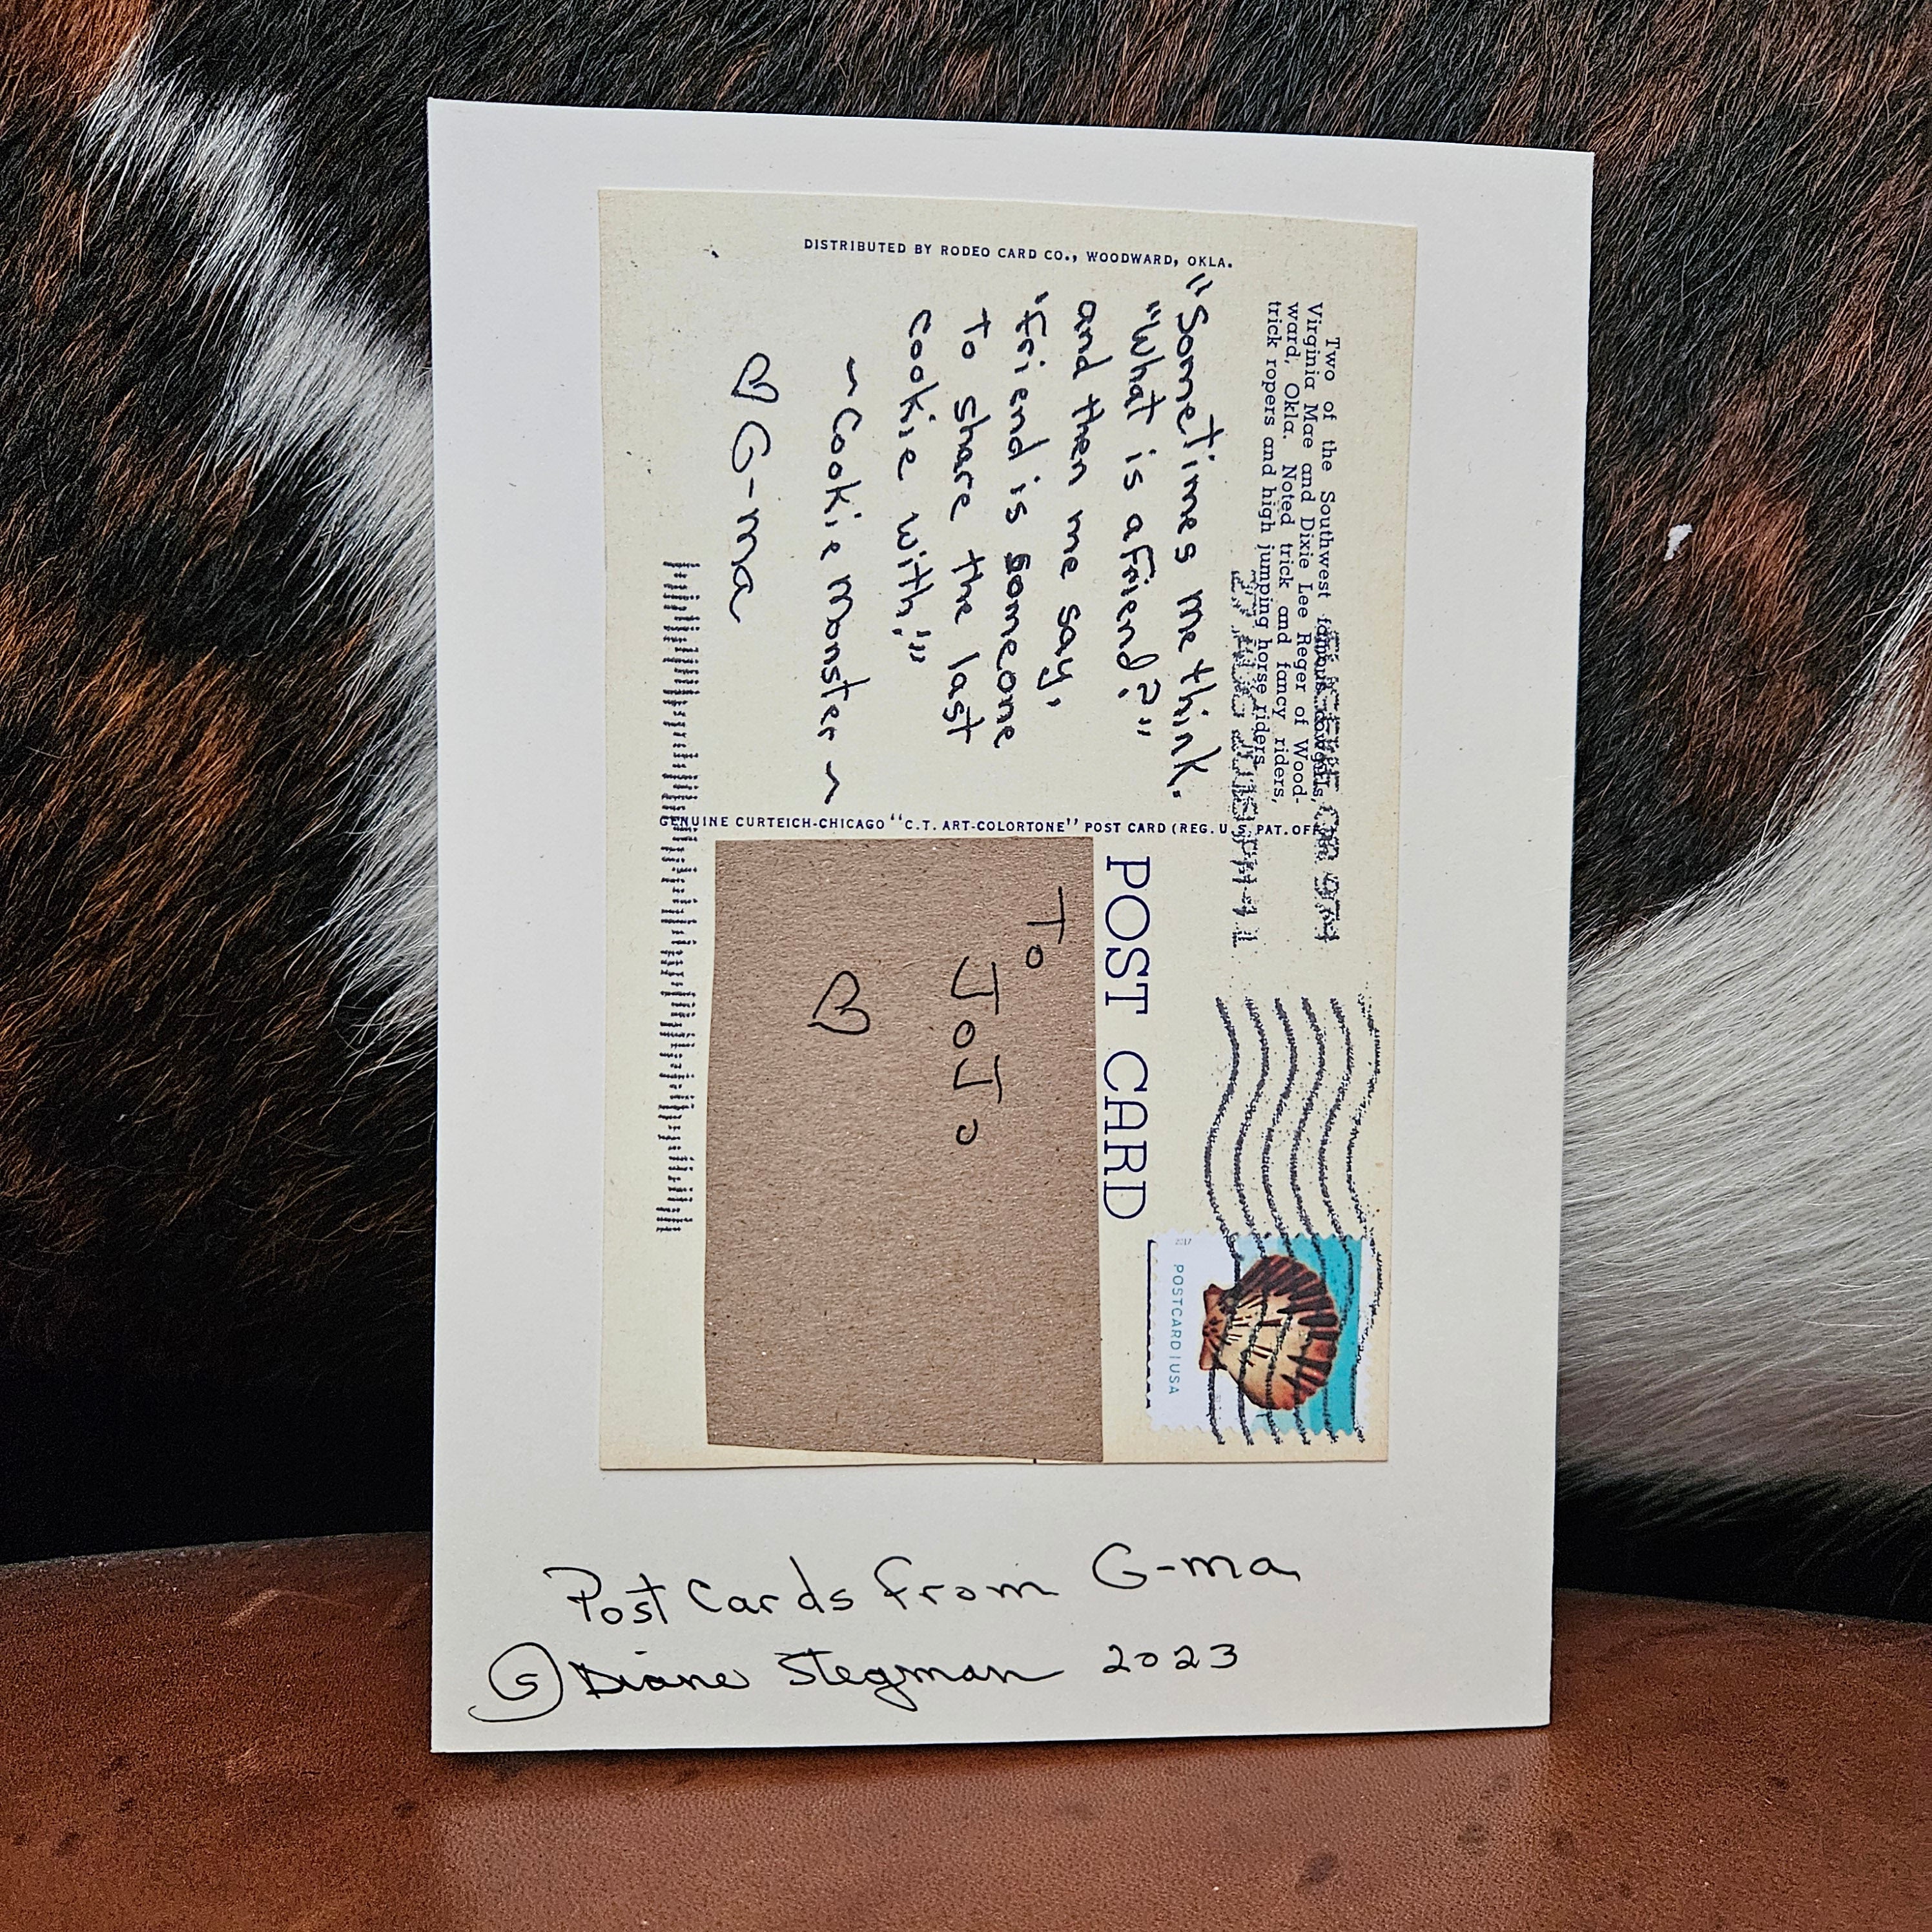 DISTRIBUTED BY RODEO CARD CO., WOODWARD, OKLA.
Two of the Southwest famous cowgirls,
Virginia Mae and Dixie Lee Reger of Wood-
ward, Okla. Noted trick and fancy riders,
trick ropers and high jumping horse riders.
"Sometimes me think.
"What is a friend?"
and then me say,
"friend is someone
to share the last
cookie with,""
~ Cookie Monster ~
♡ G-ma
GENUINE CURTEICH-CHICAGO "C.T. ART-COLORTONE" POST CARD (REG. U.S. PAT. OFF.)
POST CARD
To
JoJo
♡
2017
POSTCARD | USA
Post Cards from G-ma
Ⓖ Diane Stegman 2023